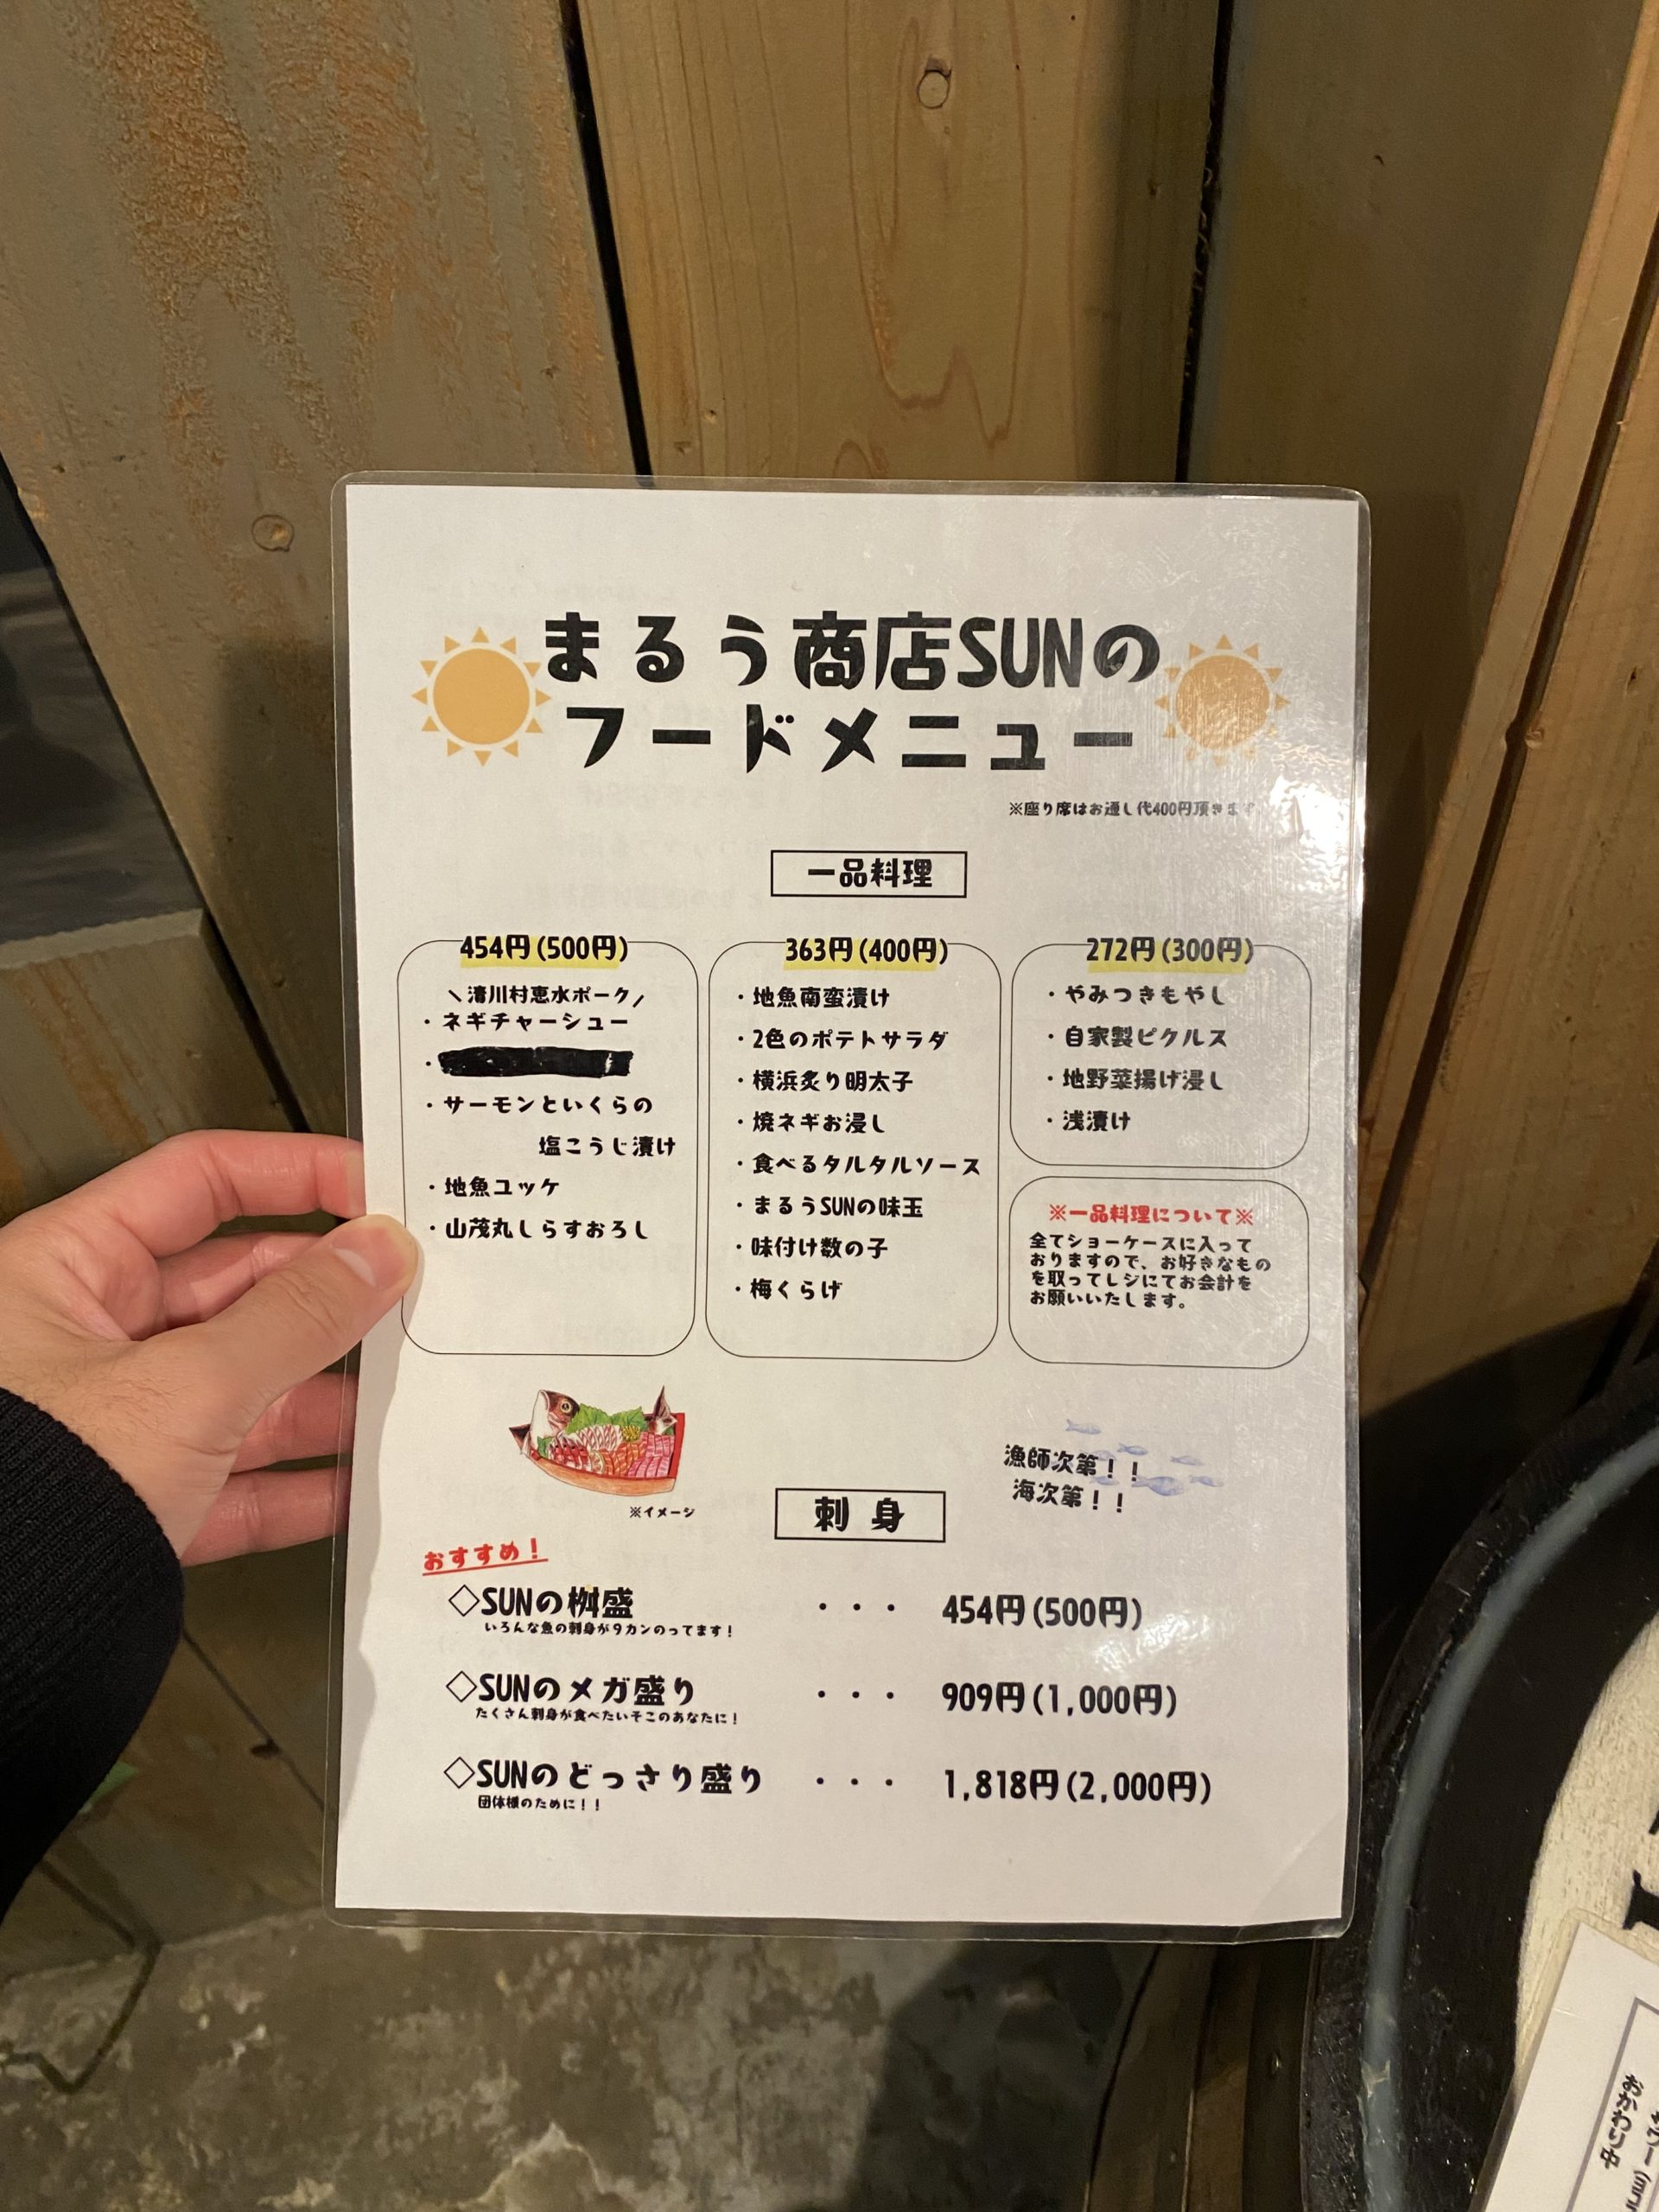 まるう商店SUNの
フードメニュー
※座り席はお通し代400円頂きます
一品料理
454円(500円)
\清川村恵水ポーク/
・ネギチャーシュー
・
・サーモンといくらの
塩こうじ漬け
・地魚ユッケ
・山茂丸しらすおろし
363円(400円)
・地魚南蛮漬け
・2色のポテトサラダ
・横浜炙り明太子
・焼ネギお浸し
・食べるタルタルソース
・まるうSUNの味玉
・味付け数の子
・梅くらげ
272円(300円)
・やみつきもやし
・自家製ピクルス
・地野菜揚げ浸し
・浅漬け
※一品料理について※
全てショーケースに入って
おりますので、お好きなもの
を取ってレジにてお会計を
お願いいたします。
※イメージ
漁師次第！！
海次第！！
刺身
おすすめ！
◇SUNの桝盛 ・・・ 454円(500円)
いろんな魚の刺身が9カンのってます！
◇SUNのメガ盛り ・・・ 909円(1,000円)
たくさん刺身が食べたいそこのあなたに！
◇SUNのどっさり盛り ・・・ 1,818円(2,000円)
団体様のために！！
おかわり中